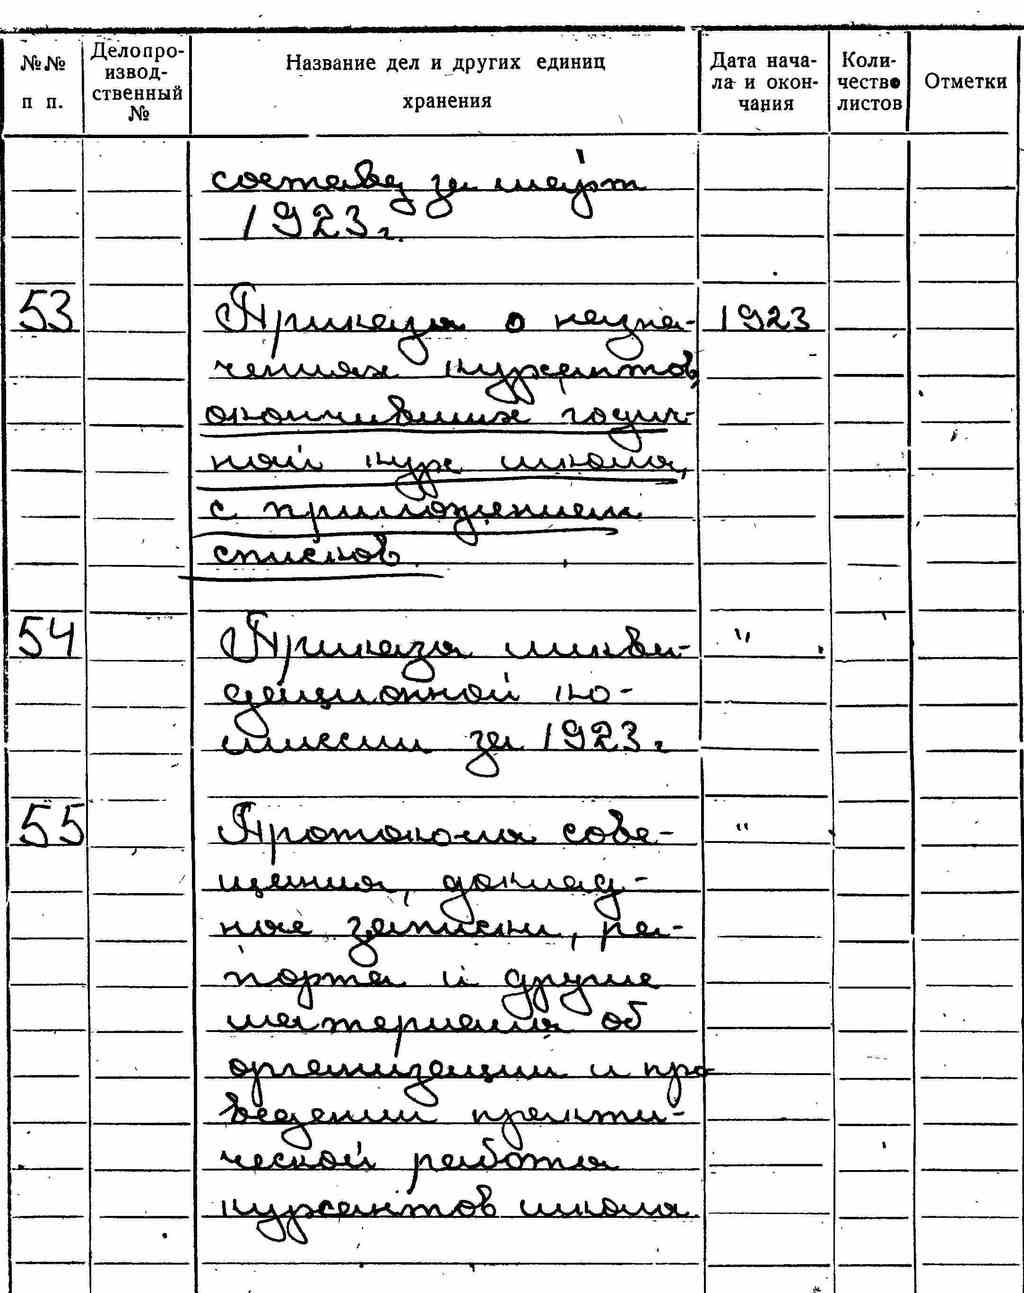 №№ п п.
Делопро-
извод-
ственный
№
Название дел и других единиц
хранения
Дата нача-
ла и окон-
чания
Коли-
чество
листов
Отметки
составу за март
1923 г.
53 Приказы о назна- 1923
чениях курсантов,
окончивших годич-
ный курс школы,
с приложением
списков
54 Приказы ликви- "
дационной ко-
миссии за 1923 г
55 Протоколы сове- "
щания, доклад-
ные записки, ра-
порта и другие
материалы об
организации и про
ведении практи-
ческой работы
курсантов школы